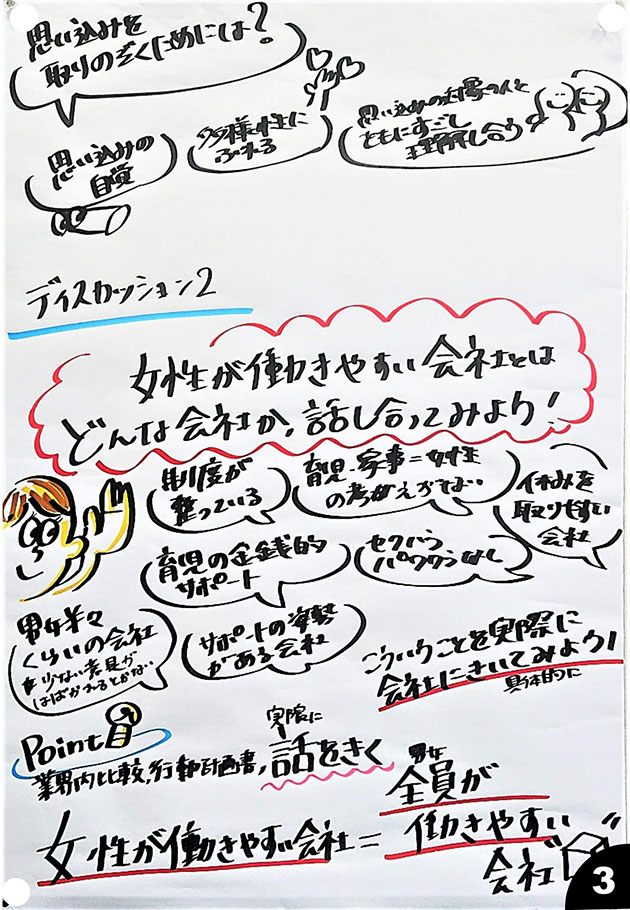 思い込みを
取りのぞくためには？
思い込みの
自覚
多様性に
ふれる
思い込みの対象の人と
ともにすごし
理解し合う
ディスカッション2
女性が働きやすい会社とは
どんな会社か、話し合ってみよう！
制度が
整っている
育児・家事＝女性
の考えがない
休みを
取りやすい
会社
育児の金銭的
サポート
セクハラ
パワハラなし
男女半々
くらいの会社
少ない意見が
はばかれるとかない
サポートの姿勢
がある会社
こういうことを実際に
会社にきいてみよう！
具体的に
Point
業界内比較，行動計画書，
実際に
話をきく
女性が働きやすい会社＝
男女
全員が
働きやすい
会社
3